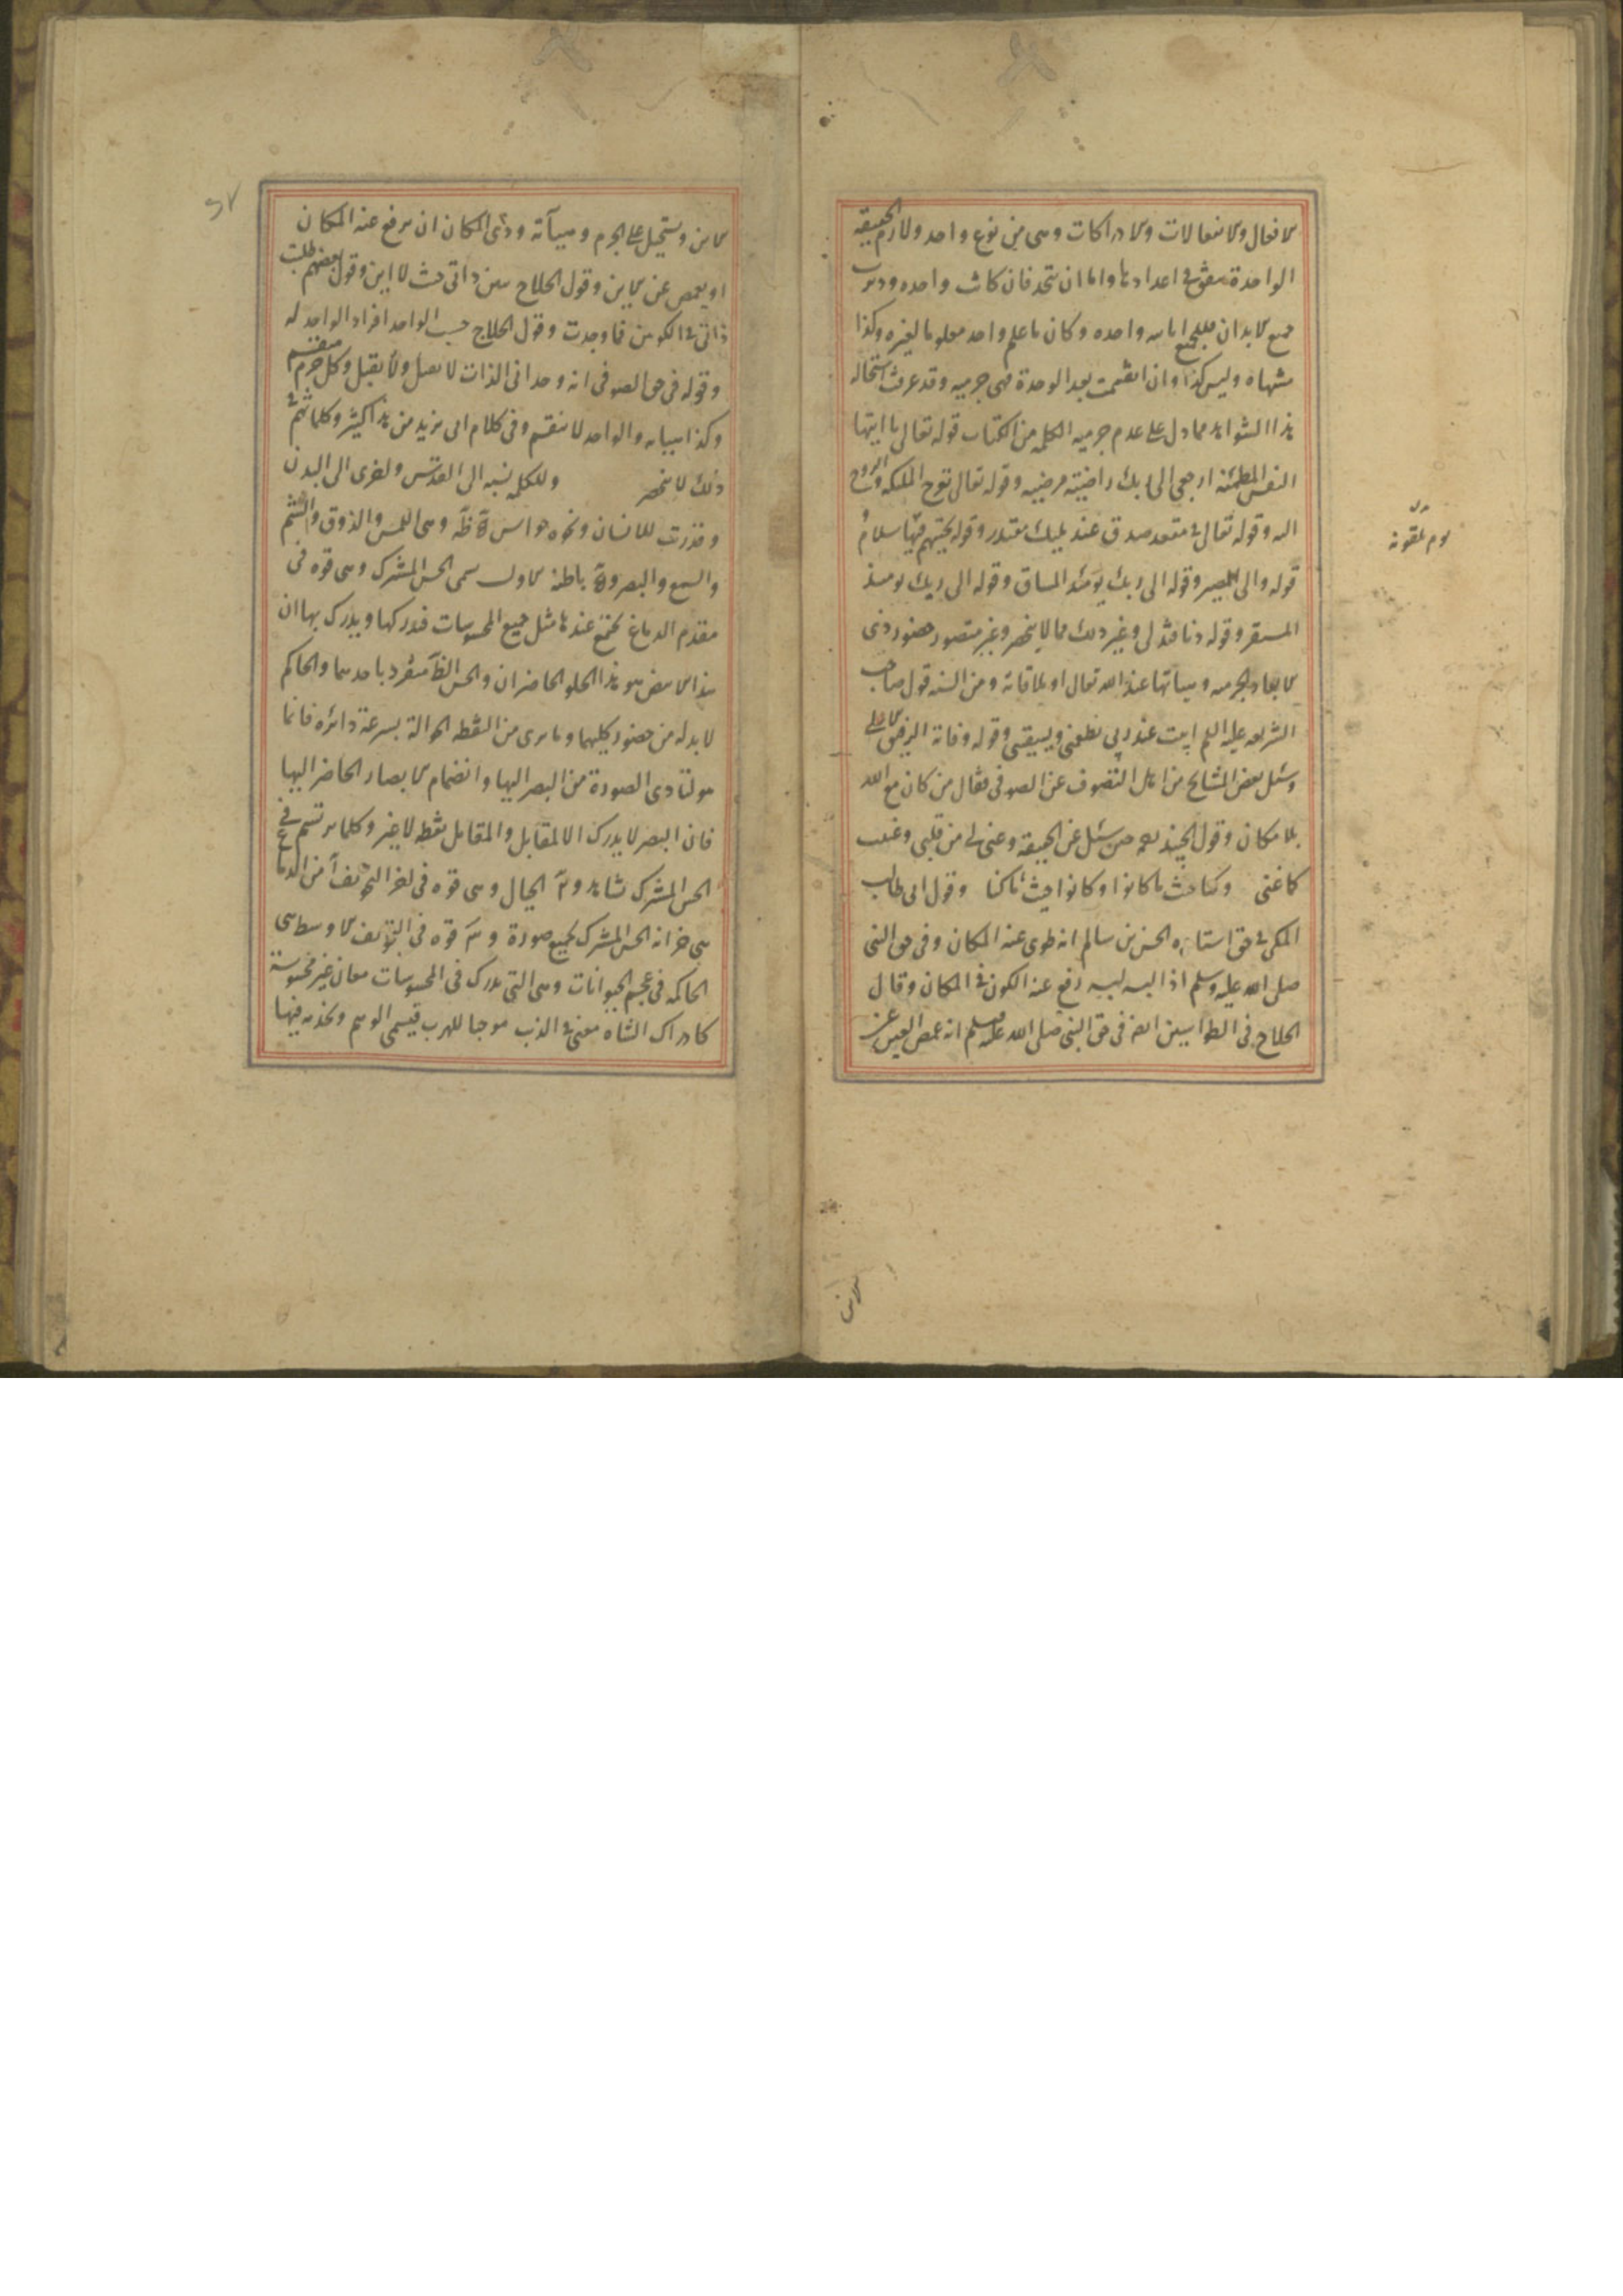 الافعال والانفعالات والادراكات وهى من نوع واحد ولازم الحقيقه
الواحدة يتفق فى اعدادها واما ان تتحد فان كانت واحده ودبرت
جميع الابدان فللجميع انايه واحده وكان ما علم واحد معلوما لغيره وكذا
مشتهاه وليس كذا وان انقسمت بعد الوحدة فهى جرميه وقد عرفت استحاله
هذا الشواهد مما دل على عدم جرميه الكلمه من الكتاب قوله تعالى يا ايتها
النفس المطمئنه ارجعى الى ربك راضية مرضيه وقوله تعالى تعرج الملئكه والروح
اليه وقوله تعالى فى مقعد صدق عند مليك مقتدر وقوله تحيتهم فيها سلام
يوم يلقونه
قوله والى المصير وقوله الى ربك يومئذ المساق وقوله الى ربك يومئذ
المستقر وقوله دنا فتدلى وغير ذلك مما لا ينحصر وغير متصور حضور ذى
الابعاد الجرميه وهيآتها عند الله تعالى او ملاقاته ومن السنه قول صاحب
الشريعه عليه السلم ابيت عند ربى يطعمنى ويسقينى وقوله وفاته الرفيق الاعلى
وسئل بعض المشايخ من اهل التصوف عن الصوفى فقال من كان مع الله
بلا مكان وقول الجنيد حين سئل عن الحقيقه وغنى لى من قلبى وغنيت
كما غنى وكنا حيث ما كانوا وكانوا حيث ما كنا وقول ابى طالب
المكى فى حق استاذه الحسن بن سالم انه طوى عنه المكان وفى حق النبى
صلى الله عليه وسلم اذا البسه لبسه رفع عنه الكون فى المكان وقال
الحلاج فى الطواسين انه فى حق النبى صلى الله عليه وسلم انه غمض العين عن
الاين ويستحيل على الجرم وهيآته وذى المكان ان يرفع عنه المكان
او يغمض عن الاين وقول الحلاج تبين ذاتى حيث لا اين وقول بعضهم طلبت
ذاتى فى الكونين فما وجدت وقول الحلاج حسب الواحد افراد الواحد له
وقوله فى حق الصوفى انه وحدانى الذات لا يقبل ولا يقبل وكل جرم منقسم
وكذا هيآته والواحد لا ينقسم وفى كلام ابى يزيد من هذا كثير
ذلك لا ينحصر وللكلمه نسبه الى القدس واخرى الى البدن
وقد رتب للانسان ونحوه حواس ظه وهى اللمس والذوق والشم
والسمع والبصر وة باطنه الاول سمى الحس المشرك وهى قوه فى
مقدم الدماغ تجتمع عندها مثل جميع المحسوسات فتدركها ويدرك بها ان
هذا الابيض هو هذا الحلو الحاضران والحس الظ متفرد باحدهما والحاكم
لا بد له من حضور كليهما وما يرى من النقطه الجواله بسرعة دائره فانما
هو لتادى الصورة من البصر اليها وانضمام الابصار الحاضر اليها
فان البصر لا يدرك الا المقابل والمقابل نقطه لا غير وكلما يرتسم فى
الحس المشرك تشاهد الخيال وهى قوه فى اخر التجويف من الدماغ
هى خزانه الحس المشرك لجميع صورة قوه فى التجويف الاوسط هى
الحاكمه فى عجم الحيوانات وهى التى تدرك فى المحسوسات معان غير محسوسة
كادراك الشاه معنى فى الذئب موجبا للهرب فيسمى الوهم وتخدمه فيها
الاين